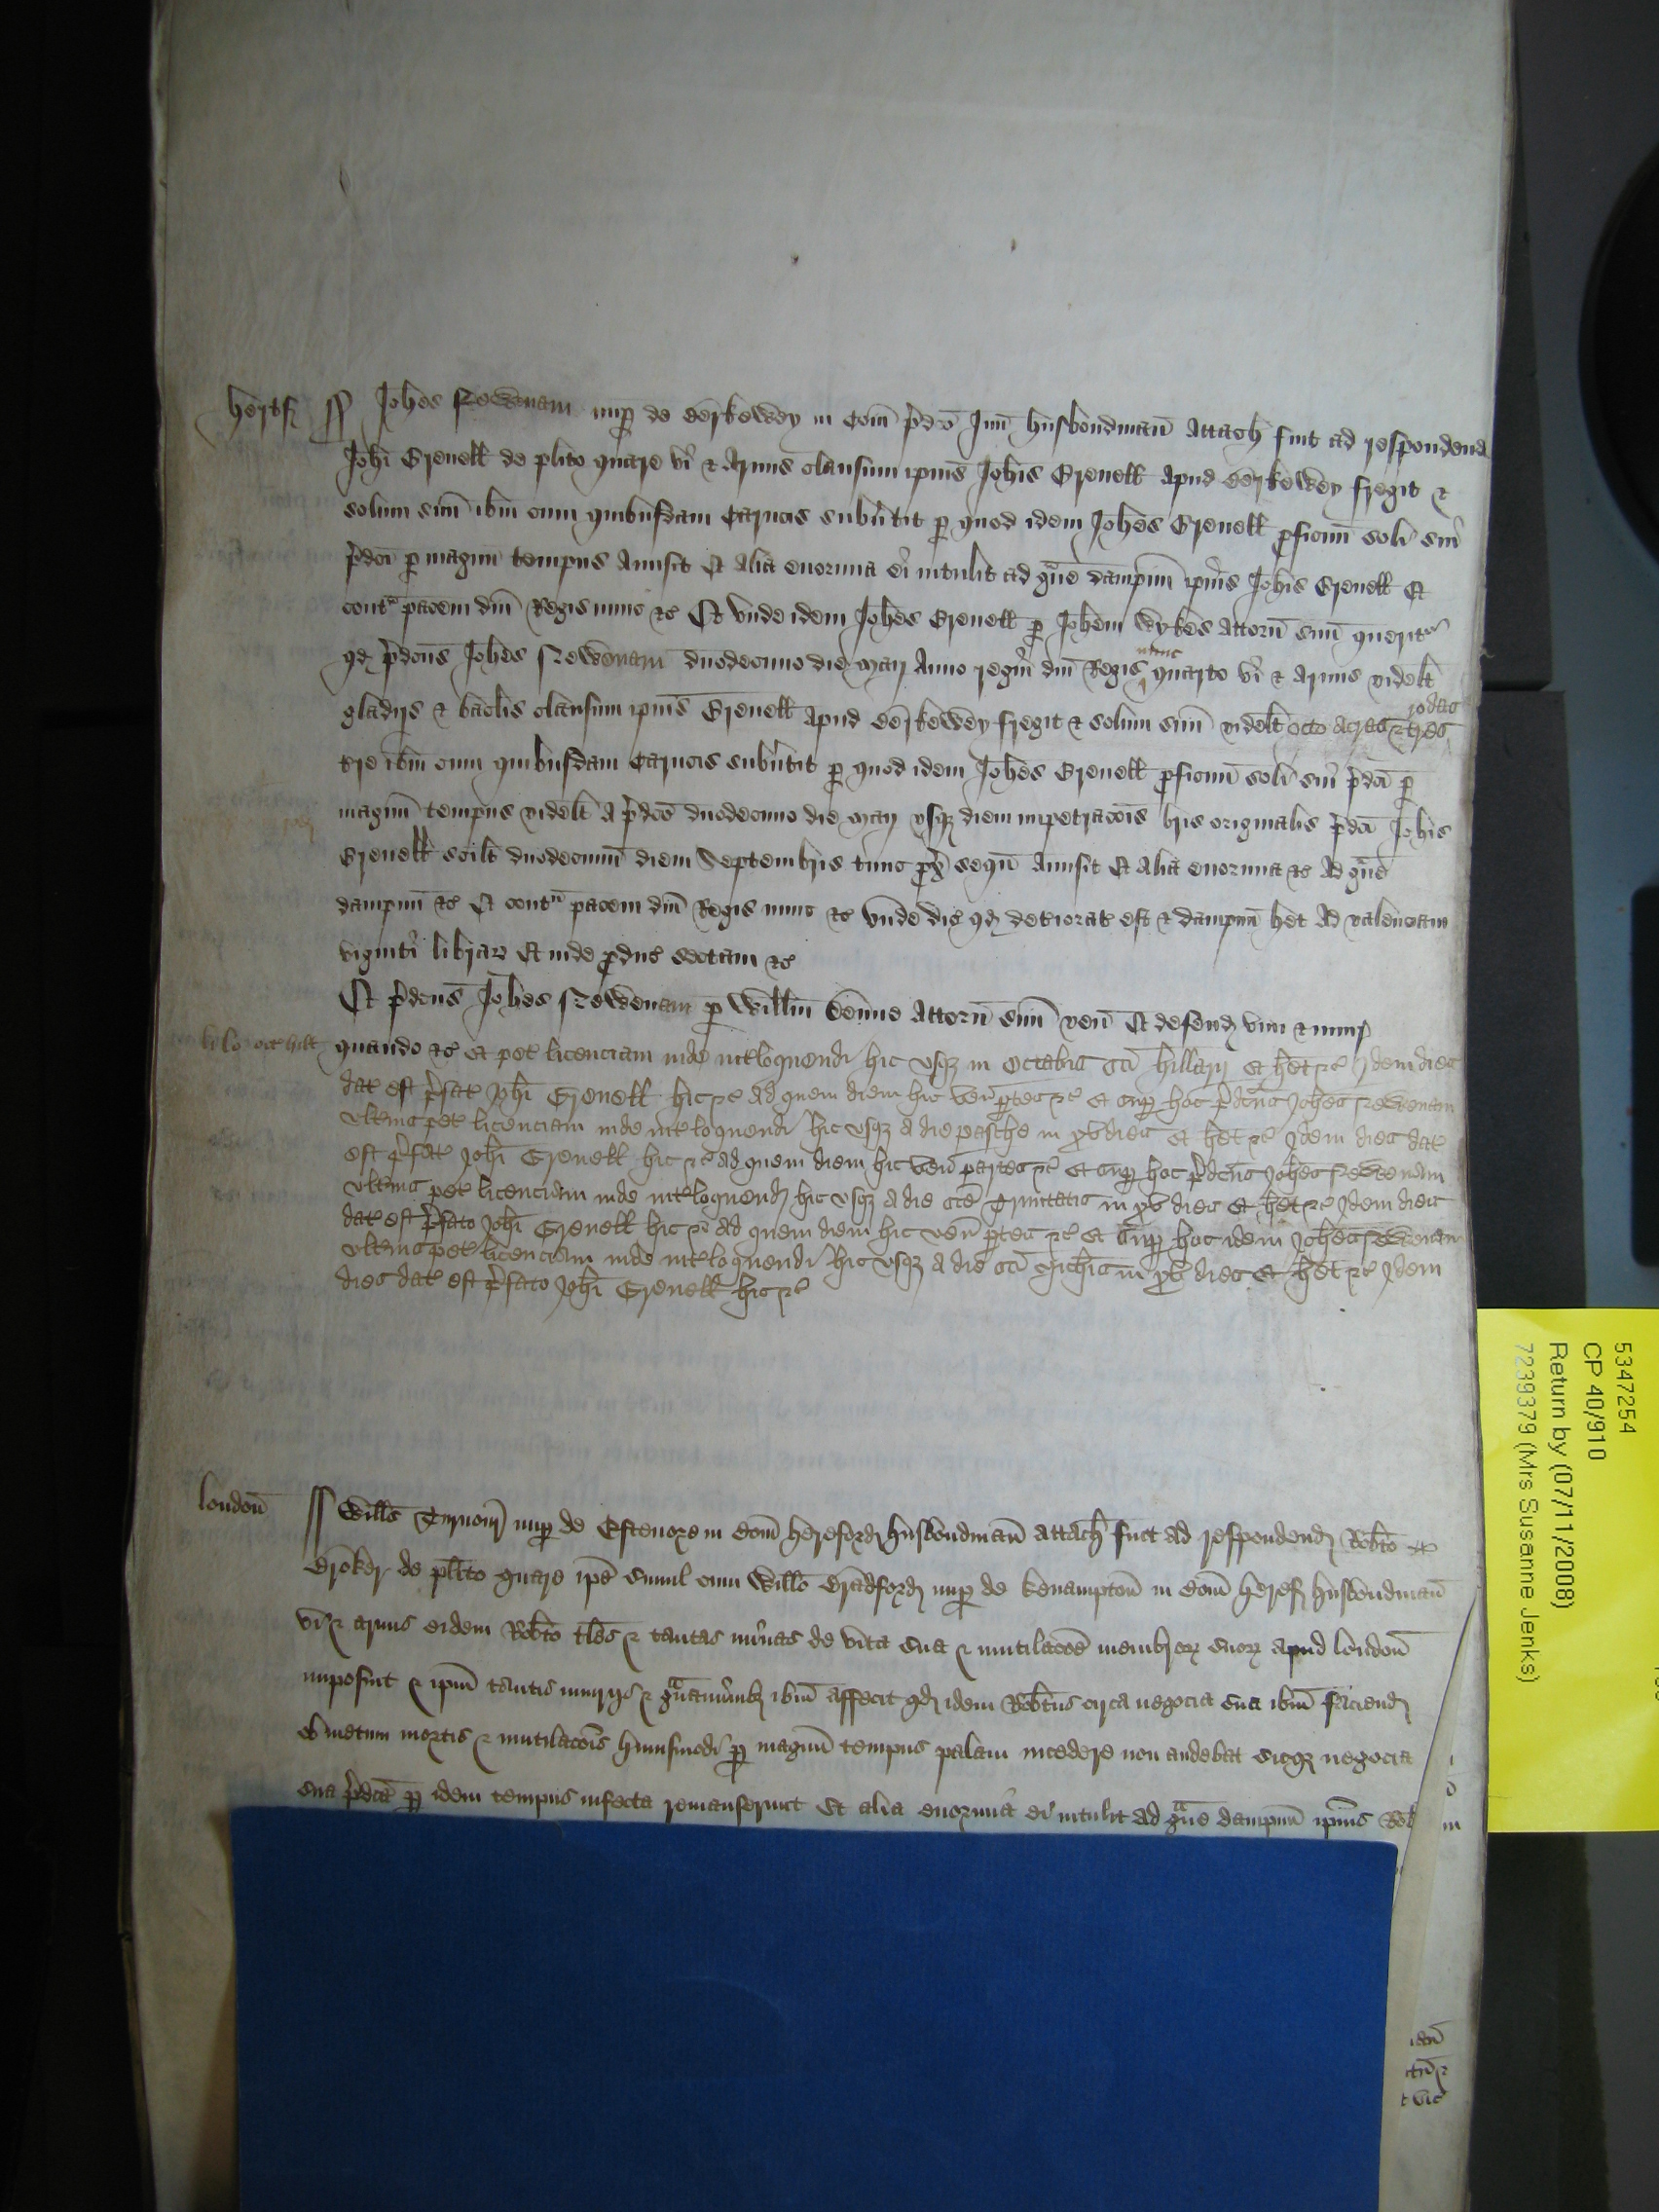 hertf Joħes nuꝑ de Berkewey in Com̄ p̄dc̄o Jun̄ husbondman̄ Attach̄ fuit ad respondend
Joħi Grenell de pl̄ito quare vi & Armis clausum ip̄ius Joħis Grenell Apud Berkewey fregit &
solum suū ib̄m cum quibusdam Carucis subv̄tit ꝑ quod idem Joħes Grenell ꝓficuū soli sui
p̄dc̄i ꝑ magnū tempus Amisit Et Alia enormia ei intulit ad g̃ue dampnū ip̄ius Joħis Grenell Et
contᵃ pacem dn̄i Regis nunc &c Et vnde idem Joħes Grenell ꝑ Joħem Wykes Attorn̄ suū querit̃
qd p̄dc̄us Joħes duodecimo die Maij Anno regn̄i dn̄i Regis nunc quarto vi & Armis videlt̄
gladijs & bac̄lis clausum ip̄ius Grenell Apud Berkewey fregit & solum suū videlt̄ octo acras & tres rodas
t̄re ib̄m cum quibusdam Carucis subv̄tit ꝑ quod idem Joħes Grenell ꝓficuū soli sui p̄dc̄i ꝑ
magnū tempus videlt̄ A p̄dc̄o duodecimo die Maij vsqꝫ diem impetrac̄ois br̄is originalis p̄dc̄i Joħis
Grenell scilt̄ duodecimū diem Septembris tunc ꝓx̄ seqū Amisit Et Alia enormia &c Ad g̃ue
dampnū &c Et contᵃ pacem dn̄i Regis nunc &c vnde dic̄ qd deteriorat̄ est & dampnū het̄ Ad valenciam
viginti librarꝝ Et inde ꝓduc̄ sectam &c
Et p̄dc̄us Joħes ꝑ Will̄m Attorn̄ suū ven̄ Et defend vim & iniur̄
li lo oct hill quando &c et pet̄ licenciam inde int̄loquendi hic vsqꝫ in Octabis sc̄i hillarij et het̄ &c Idem dies
dat̄ est p̄fat̄ Joħi Grenell hic &c Ad quem diem hic ven̄ ꝑtes &c et suꝑ hoc p̄dc̄us Joħes
vlt̄ius pet̄ licenciam inde int̄loquendi hic vsqꝫ a die pasche in xv dies et het̄ &c Idem dies dat̄
est p̄fat̄ Joħi Grenell hic &c ad quem diem hic ven̄ partes &c et suꝑ hoc p̄dc̄us Joħes
vlt̄ius pet̄ licenciam inde int̄loquend hic vsqꝫ a die sc̄e Trinitatis in xv dies et het̄ &c Idem dies
dat̄ est p̄fato Joħi Grenell hic &c Ad quem diem hic ven̄ ꝑtes &c et suꝑ hoc idem Joħes
vlt̄ius pet̄ licenciam inde int̄loquendi hic vsqꝫ a die sc̄i Mich̄is in xv dies et het̄ &c Idem
dies dat̄ est p̄fato Joħi Grenell hic &c
london̄ Will̄s nuꝑ de Estenore in Com̄ hereford husbondman̄ attach̄ fuit ad respondend Rob̄to
Broker de pl̄ito quare ip̄e simul cum Will̄o Bradford nuꝑ de in Com̄ heref husbondman̄
vi & armis eidem Rob̄to tales & tantas minas de vita sua & mutilac̄oe membrorꝝ suorꝝ apud london̄
imposuit & ip̄m tantis iniurijs & g̃uaminibꝫ ib̄m affecit qd idem Rob̄tus circa negocia sua ib̄m faciend
ob metum mortis & mutilac̄ois huiusmodi ꝑ magnū tempus palam incedere non audebat sicqꝫ negocia
sua p̄dc̄a ꝑ idem tempus infecta remanserunt Et alia enormia ei intulit ad g̃ue dampnū ip̄ius Rob
5347254
CP 40/910
Return by (07/11/2008)
7239379 (Mrs Susanne Jenks)